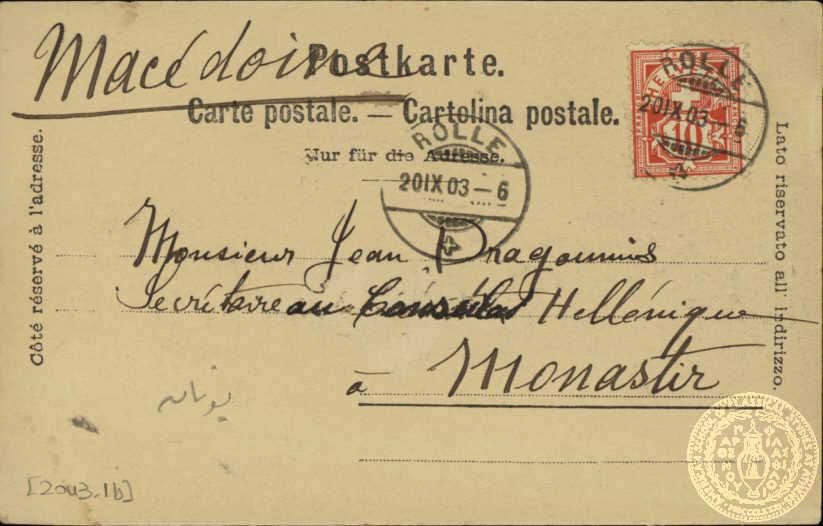 Macédoine
Postkarte.
Carte postale. — Cartolina postale.
Nur für die Adresse.
Côté réservé à l'adresse.
Lato riservato all' indirizzo.
HELVETIA
10
ROLLE
20 IX 03 – 6
ROLLE
20 IX 03 – 6
Monsieur Jean Dragoumis
Secrétaire au Consulat Hellénique
à Monastir
يونان
[2043.1b]